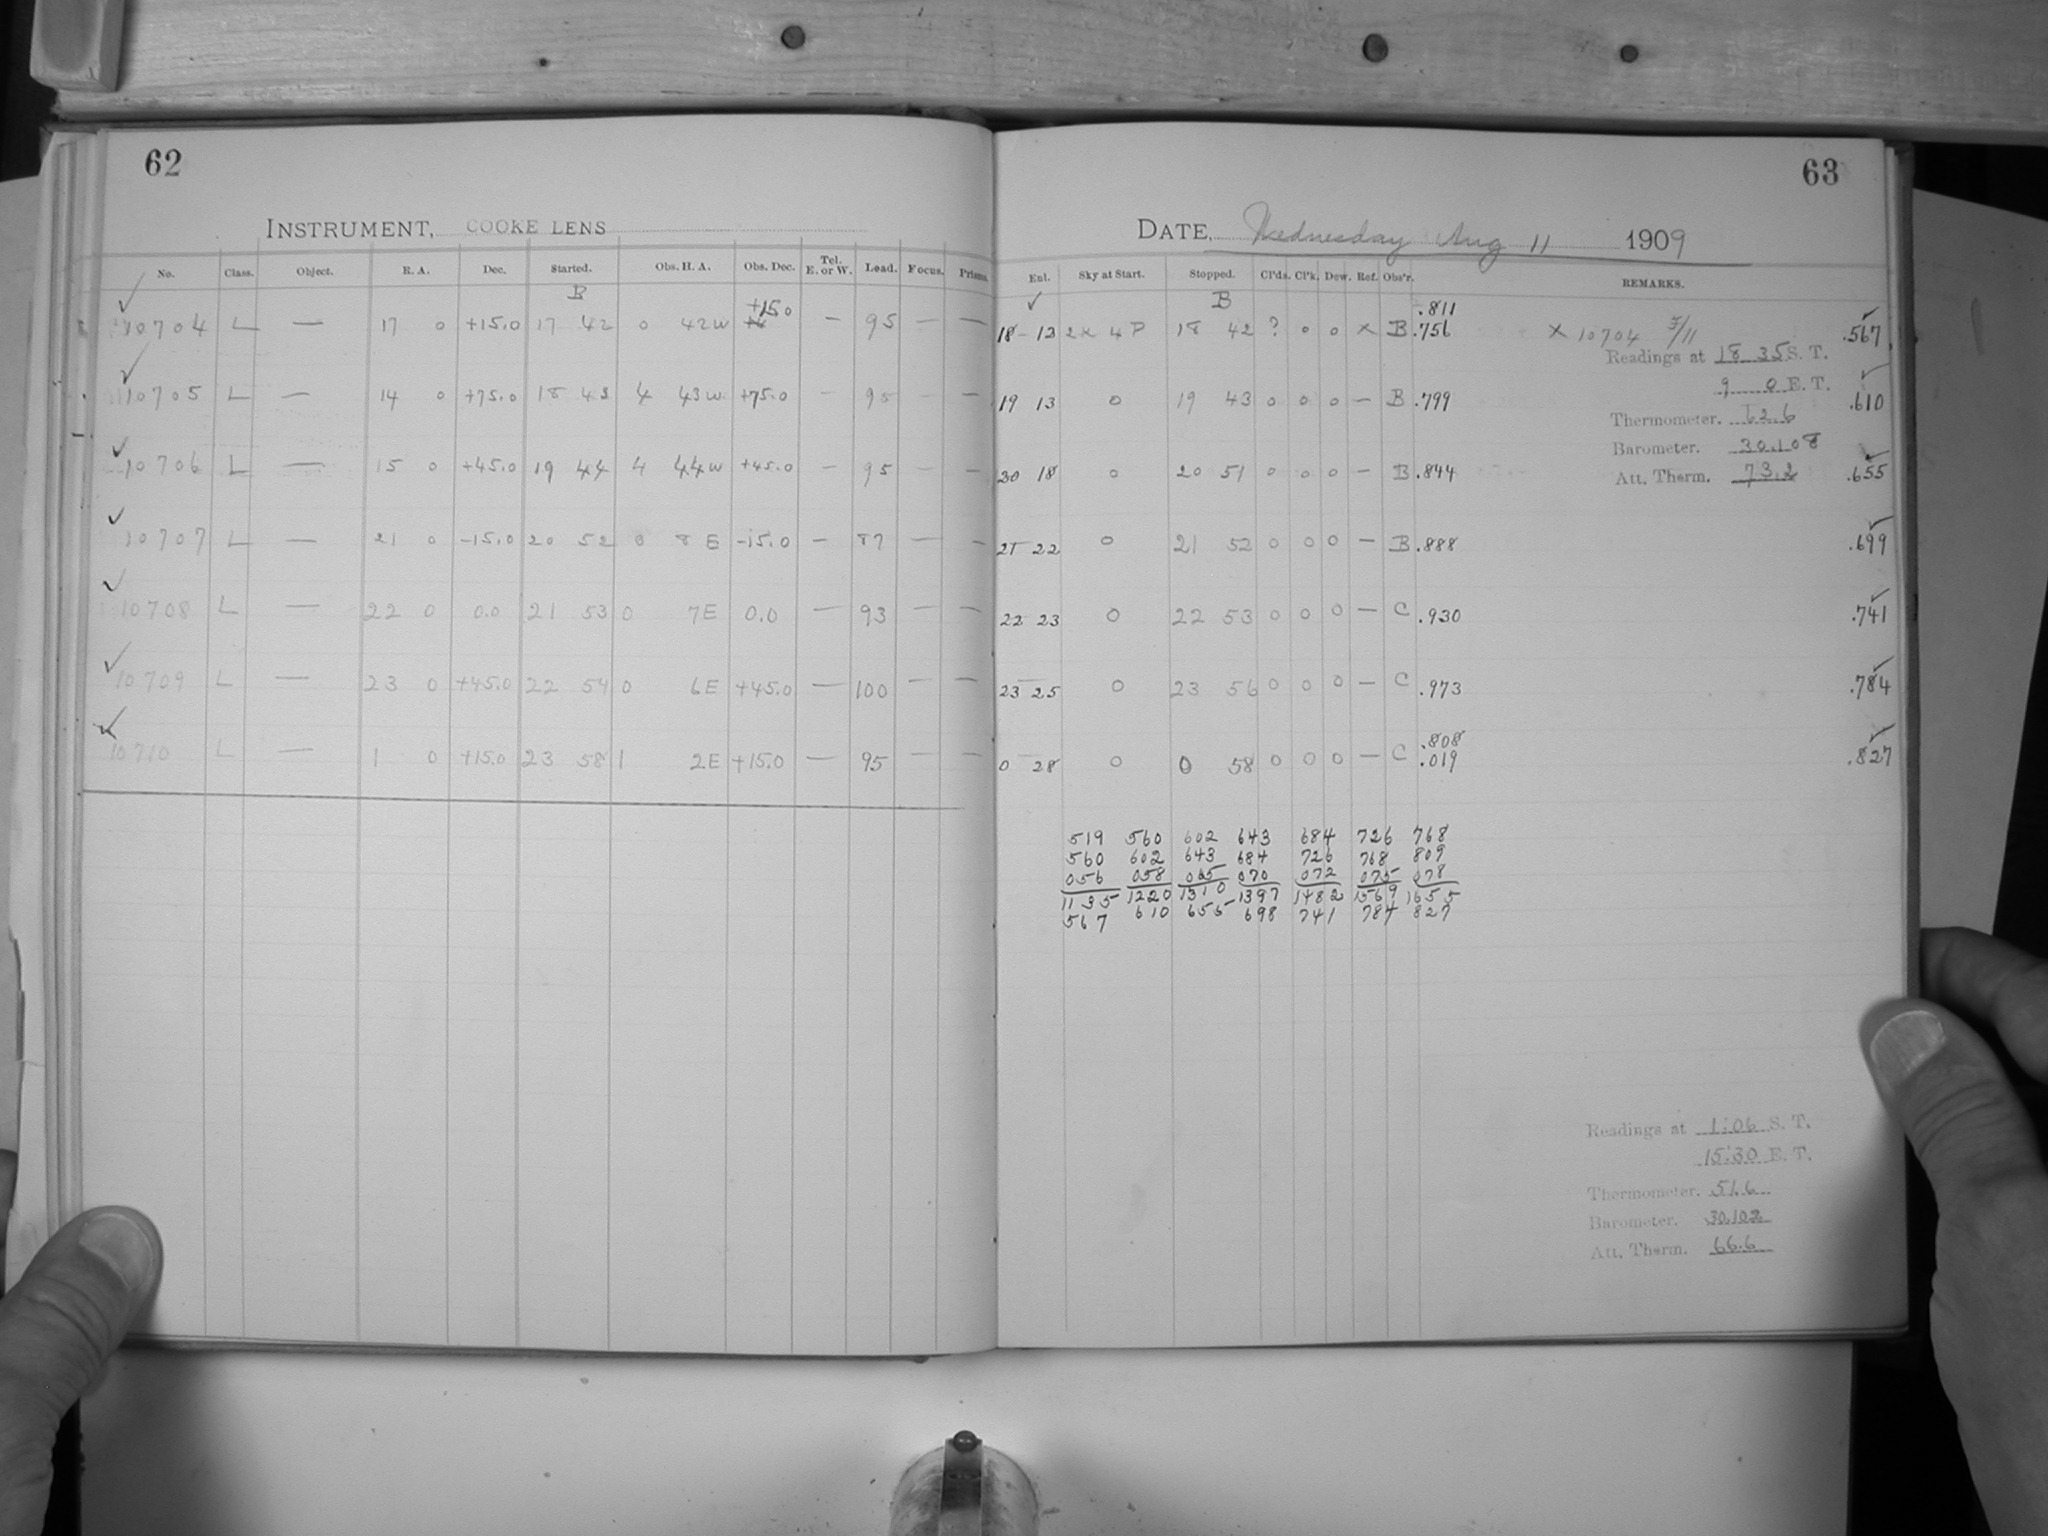 62
INSTRUMENT, COOKE LENS
No. Class. Object. R. A. Dec. Started. Obs. H. A. Obs. Dec. Tel. E. or W. Lead. Focus. Prisms.
B
+15.0
10704 L — 17 0 +15.0 17 42 0 42W — 95 — —
10705 L — 14 0 +75.0 18 43 4 43W +75.0 — 95 — —
10706 L — 15 0 +45.0 19 44 4 44W +45.0 — 95 — —
10707 L — 21 0 -15.0 20 52 0 8E -15.0 — 87 — —
10708 L — 22 0 0.0 21 53 0 7E 0.0 — 93 — —
10709 L — 23 0 +45.0 22 54 0 6E +45.0 — 100 — —
10710 L — 1 0 +15.0 23 58 1 2E +15.0 — 95 — —
63
DATE, Wednesday Aug 11 1909
Ent. Sky at Start. Stopped. Cl'ds. Cl'k. Dew. Ref. Obs'r. REMARKS.
✓ B .811
18-13 2K 4P 18 42 ? 0 0 X B .756 X 10704 F/11 .567
Readings at 18 35 S. T.
9 0 E. T.
19 13 0 19 43 0 0 0 — B .799 .610
Thermometer. 62.6
Barometer. 30.108
20 18 0 20 51 0 0 0 — B .844 .655
Att. Therm. 73.2
21 22 0 21 52 0 0 0 — B .888 .699
22 23 0 22 53 0 0 0 — C .930 .741
23 25 0 23 56 0 0 0 — C .973 .784
.808
0 28 0 0 58 0 0 0 — C .019 .827
519 560 602 643 684 726 768
560 602 643 684 726 768 809
056 058 065 070 072 075 078
1135 1220 1310 1397 1482 1569 1655
567 610 655 698 741 784 827
Readings at 1:06 S. T.
15:30 E. T.
Thermometer. 51.6
Barometer. 30.102
Att. Therm. 66.6